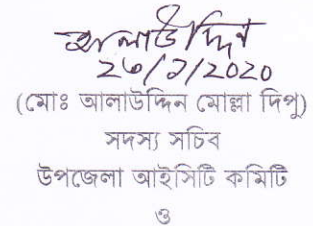 আলাউদ্দিন
২৩/১/2020
(মোঃ আলাউদ্দিন মোল্লা দিপু)
সদস্য সচিব
উপজেলা আইসিটি কমিটি
ও